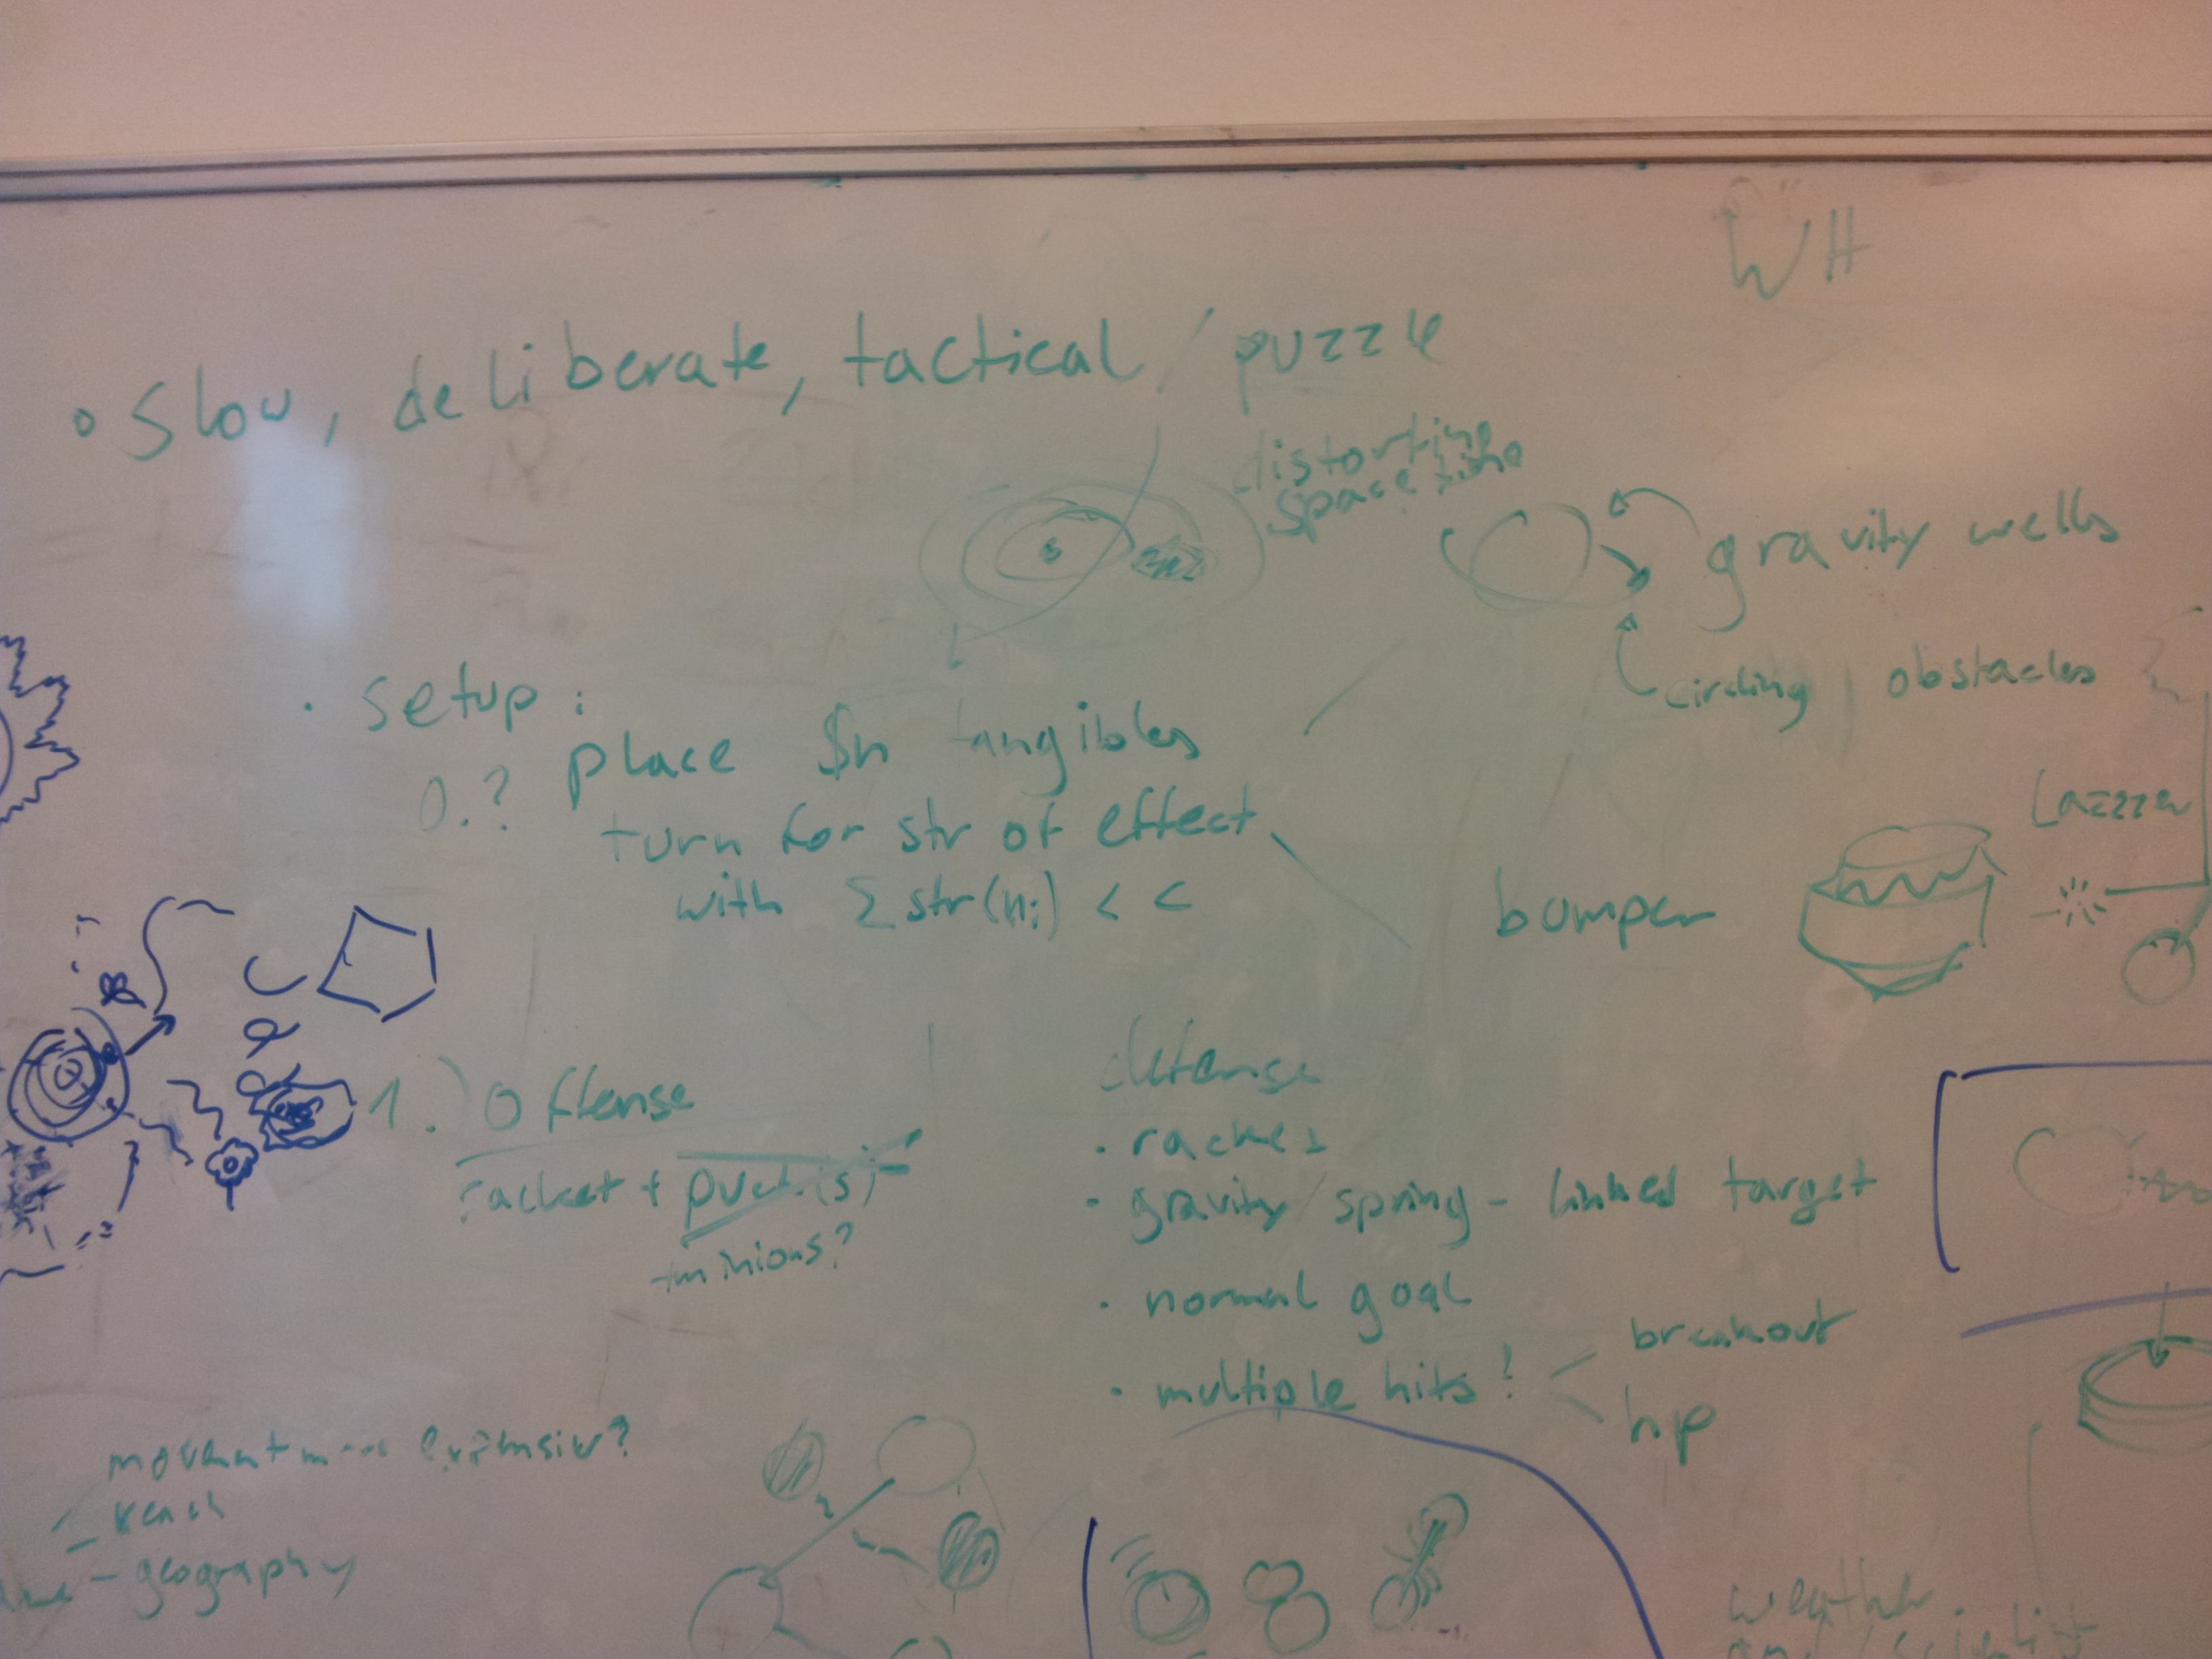 WH
• Slow, deliberate, tactical / puzzle
distorting
space time
gravity wells
circling obstacles
• setup :
0.? place $n tangibles
turn for str of effect
with Σ str(n:) < c
Lazzzer
bumper
1. Offense
racket + puck(s)
+minions?
defense
• racket
• gravity/spring - linked target
• normal goal
• multiple hits!
breakout
hp
expensive?
- reach
- geography
weather